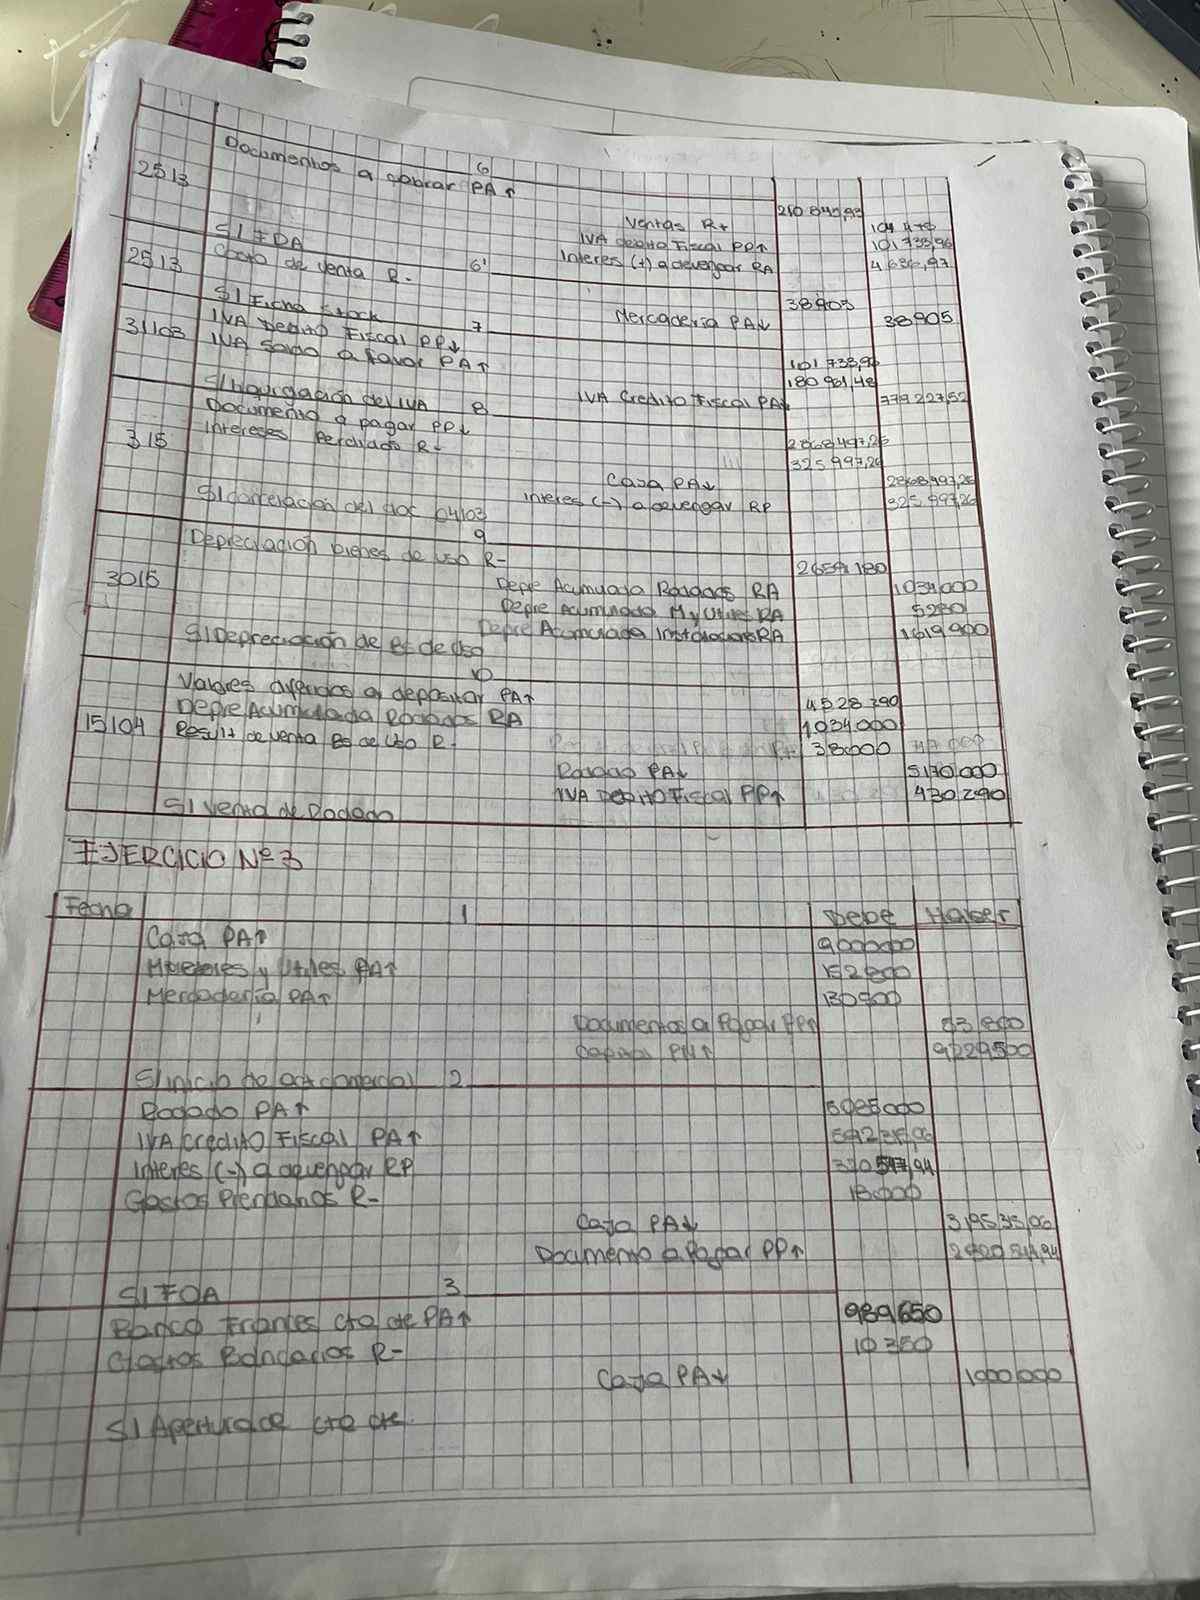 6
2513 Documentos a cobrar PA↑ 210 840,93
Ventas R+ 104 479
IVA debito Fiscal PP↑ 101 733,96
Interes (+) a devengar RA 4 636,97
S/ FDA
6'
2513 Costo de venta R- 38905
Mercaderia PA↓ 38905
S/ Ficha Stock
7
31103 IVA Debito Fiscal PP↓ 101 733,96
IVA Saldo a favor PA↑ 180 961,48
IVA Credito Fiscal PA↓
S/ liquidación del IVA
8
315 Documento a pagar PP↓ 2868 497,26
Intereses Perdidado R- 325 997,26
Caja PA↓ 2868 497,26
Interes (-) a devengar RP 325 997,26
S/ cancelacion del doc 04103
9
3015 Depreciación bienes de uso R- 2659 180
Depre Acumulada Rodados RA 1034000
Depre Acumulada M y Utiles RA 5280
Depre Acumulada Instalaciones RA 1619 900
S/ Depreciación de Bs de Uso
10
15104 Valores diferidos a depositar PA↑ 4528 290
Depre Acumulada Rodados RA 1034000
Result de venta Bs de Uso R- 38000
Rodado PA↓ 5170,000
IVA Debito Fiscal PP↑ 430,290
S/ Venta de Rodado
EJERCICIO Nº 3
Fecha 1 Debe Haber
Caja PA↑ 9000000
Muebles y Utiles PA↑ 152 800
Mercaderia PA↑ 130500
Documentos a Pagar PP↑ 53 800
Capital PN↑ 9229500
S/ inicio de act comercial
2
Rodado PA↑ 5085000
IVA Credito Fiscal PA↑
Interes (-) a devengar RP
Gastos Prendarios R- 18000
Caja PA↓ 3195 35,06
Documento a Pagar PP↑
S/ FDA
3
Banco Frances cta cte PA↑ 989,650
Gastos Bancarios R- 10 350
Caja PA↓ 1000,000
S/ Apertura de cta cte